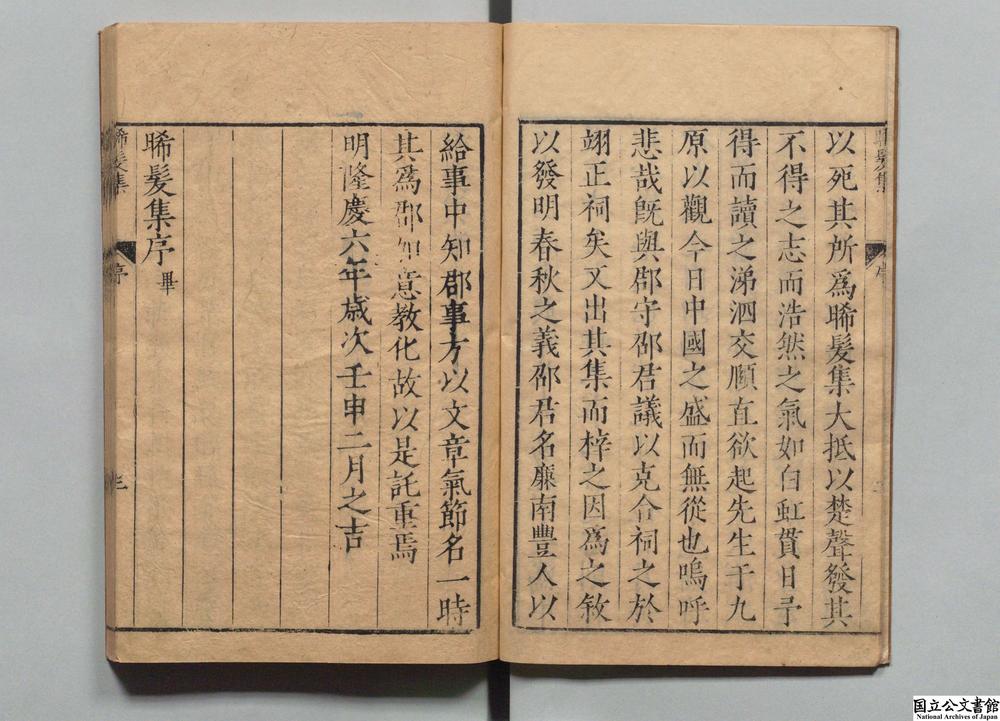 以死其所爲晞髮集大抵以楚聲發其
不得之志而浩然之氣如白虹貫日予
得而讀之涕泗交順直欲起先生于九
原以觀今日中國之盛而無從也嗚呼
悲哉旣與郡守邵君議以克合祠之於
翊正祠矣又出其集而梓之因爲之敘
以發明春秋之義邵君名廉南豐人以
給事中知郡事方以文章氣節名一時
其爲郡加意教化故以是託重焉
明隆慶六年歲次壬申二月之吉
晞髮集序畢
晞髮集
序
三
国立公文書館
National Archives of Japan